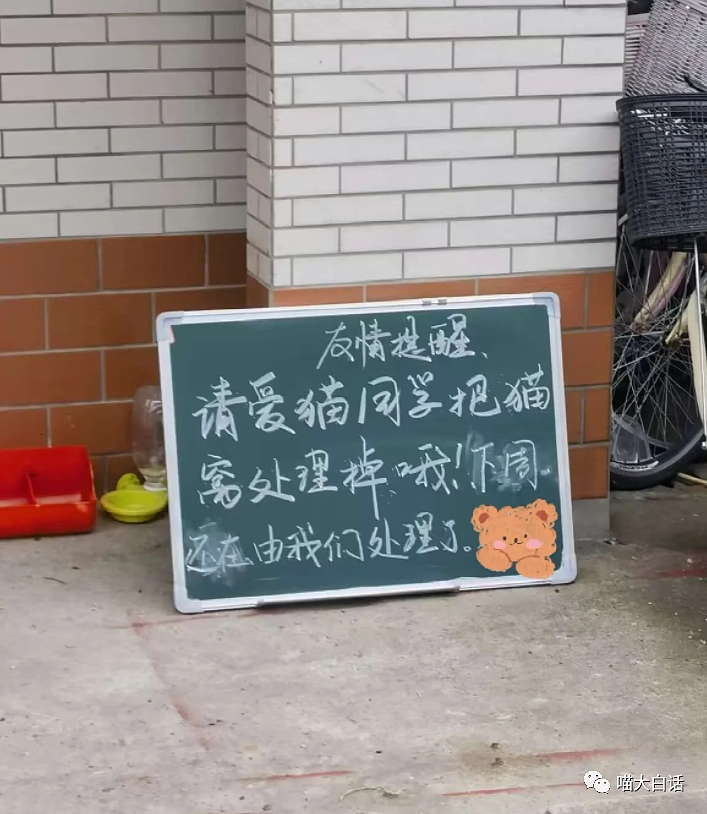 友情提醒、
请爱猫同学把猫
窝处理掉哦!下周
还在由我们处理了。
喵大白话